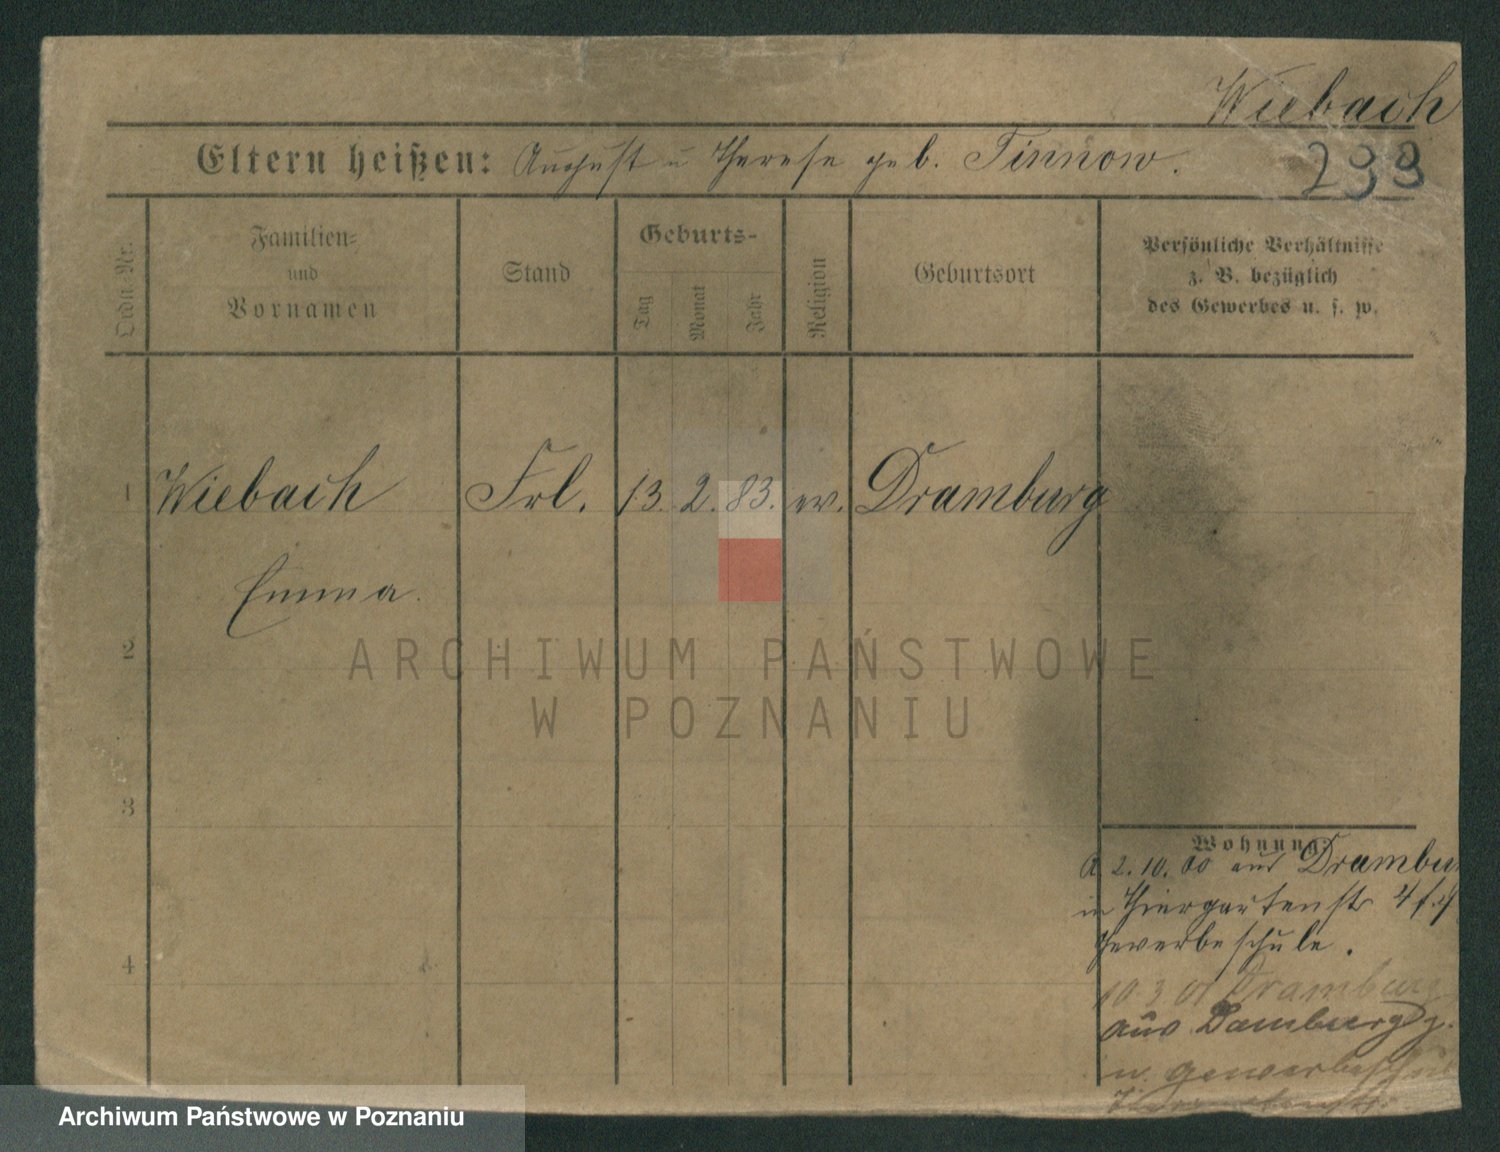 Wiebach
Eltern heißen: August u Therese geb. Tinnow.
Ordn. Nr.
Familien-
und
Vornamen
Stand
Geburts-
Tag
Monat
Jahr
Religion
Geburtsort
Persönliche Verhältnisse
z. B. bezüglich
des Gewerbes u. s. w.
1 Wiebach Frl. 13. 2. 83. ev. Dramburg
Emma.
2
ARCHIWUM PAŃSTWOWE
W POZNANIU
3
Wohnung:
2. 10. 00 aus Dramburg
in Thiergartenstr 4
Gewerbeschule.
4
10 3 01 Dramburg
aus Damburg
n. gewerbeschul
Archiwum Państwowe w Poznaniu